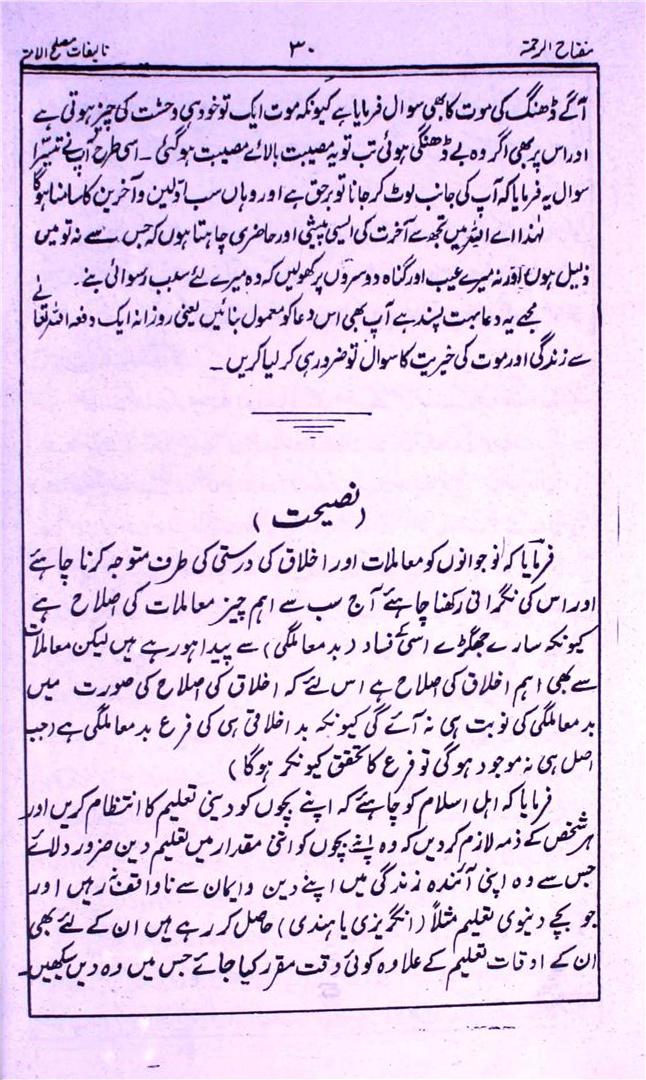 مفتاح الرحمۃ
۳۰
تالیفات مصلح الامۃ
آگے ڈھنگ کی موت کا بھی سوال فرمایا ہے کیونکہ موت ایک تو خود ہی وحشت کی چیز ہوتی ہے
اور اس پر بھی اگر وہ بے ڈھنگی ہوئی تب تو یہ مصیبت بالائے مصیبت ہوگئی۔ اسی طرح آپ نے تیسرا
سوال یہ فرمایا کہ آپ کی جانب لوٹ کر جانا تو برحق ہے اور وہاں سب اولین و آخرین کا سامنا ہوگا
لہٰذا اے اللہ میں تجھ سے آخرت کی ایسی پیشی اور حاضری چاہتا ہوں کہ جس سے نہ تو میں
ذلیل ہوں اور نہ میرے عیب اور گناہ دوسروں پر کھولیں کہ وہ میرے لئے سبب رسوائی بنے۔
مجھے یہ دعا بہت پسند ہے آپ بھی اس دعا کو معمول بنائیں یعنی روزانہ ایک دفعہ اللہ تعالٰے
سے زندگی اور موت کی خیریت کا سوال تو ضرور ہی کر لیا کریں۔
(نصیحت)
فرمایا کہ نوجوانوں کو معاملات اور اخلاق کی درستی کی طرف متوجہ کرنا چاہئے
اور اس کی نگرانی رکھنا چاہئے آج سب سے اہم چیز معاملات کی اصلاح ہے
کیونکہ سارے جھگڑے اسی کے فساد (بدمعاملگی) سے پیدا ہو رہے ہیں لیکن معاملات
سے بھی اہم اخلاق کی اصلاح ہے اس لئے کہ اخلاق کی اصلاح کی صورت میں
بدمعاملگی کی نوبت ہی نہ آئے گی کیونکہ بداخلاقی ہی کی فرع بدمعاملگی ہے (جب
اصل ہی نہ موجود ہوگی تو فرع کا تحقق کیونکر ہوگا)
فرمایا کہ اہل اسلام کو چاہئے کہ اپنے بچوں کو دینی تعلیم کا انتظام کریں اور
ہر شخص کے ذمہ لازم کردیں کہ وہ اپنے بچوں کو اتنی مقدار میں تعلیم دین ضرور دلائے
جس سے وہ اپنی آئندہ زندگی میں اپنے دین و ایمان سے ناواقف نہ رہیں اور
جو بچے دنیوی تعلیم مثلاً (انگریزی یا ہندی) حاصل کر رہے ہیں ان کے لئے بھی
ان کے اوقات تعلیم کے علاوہ کوئی وقت مقرر کیا جائے جس میں وہ دین سیکھیں۔